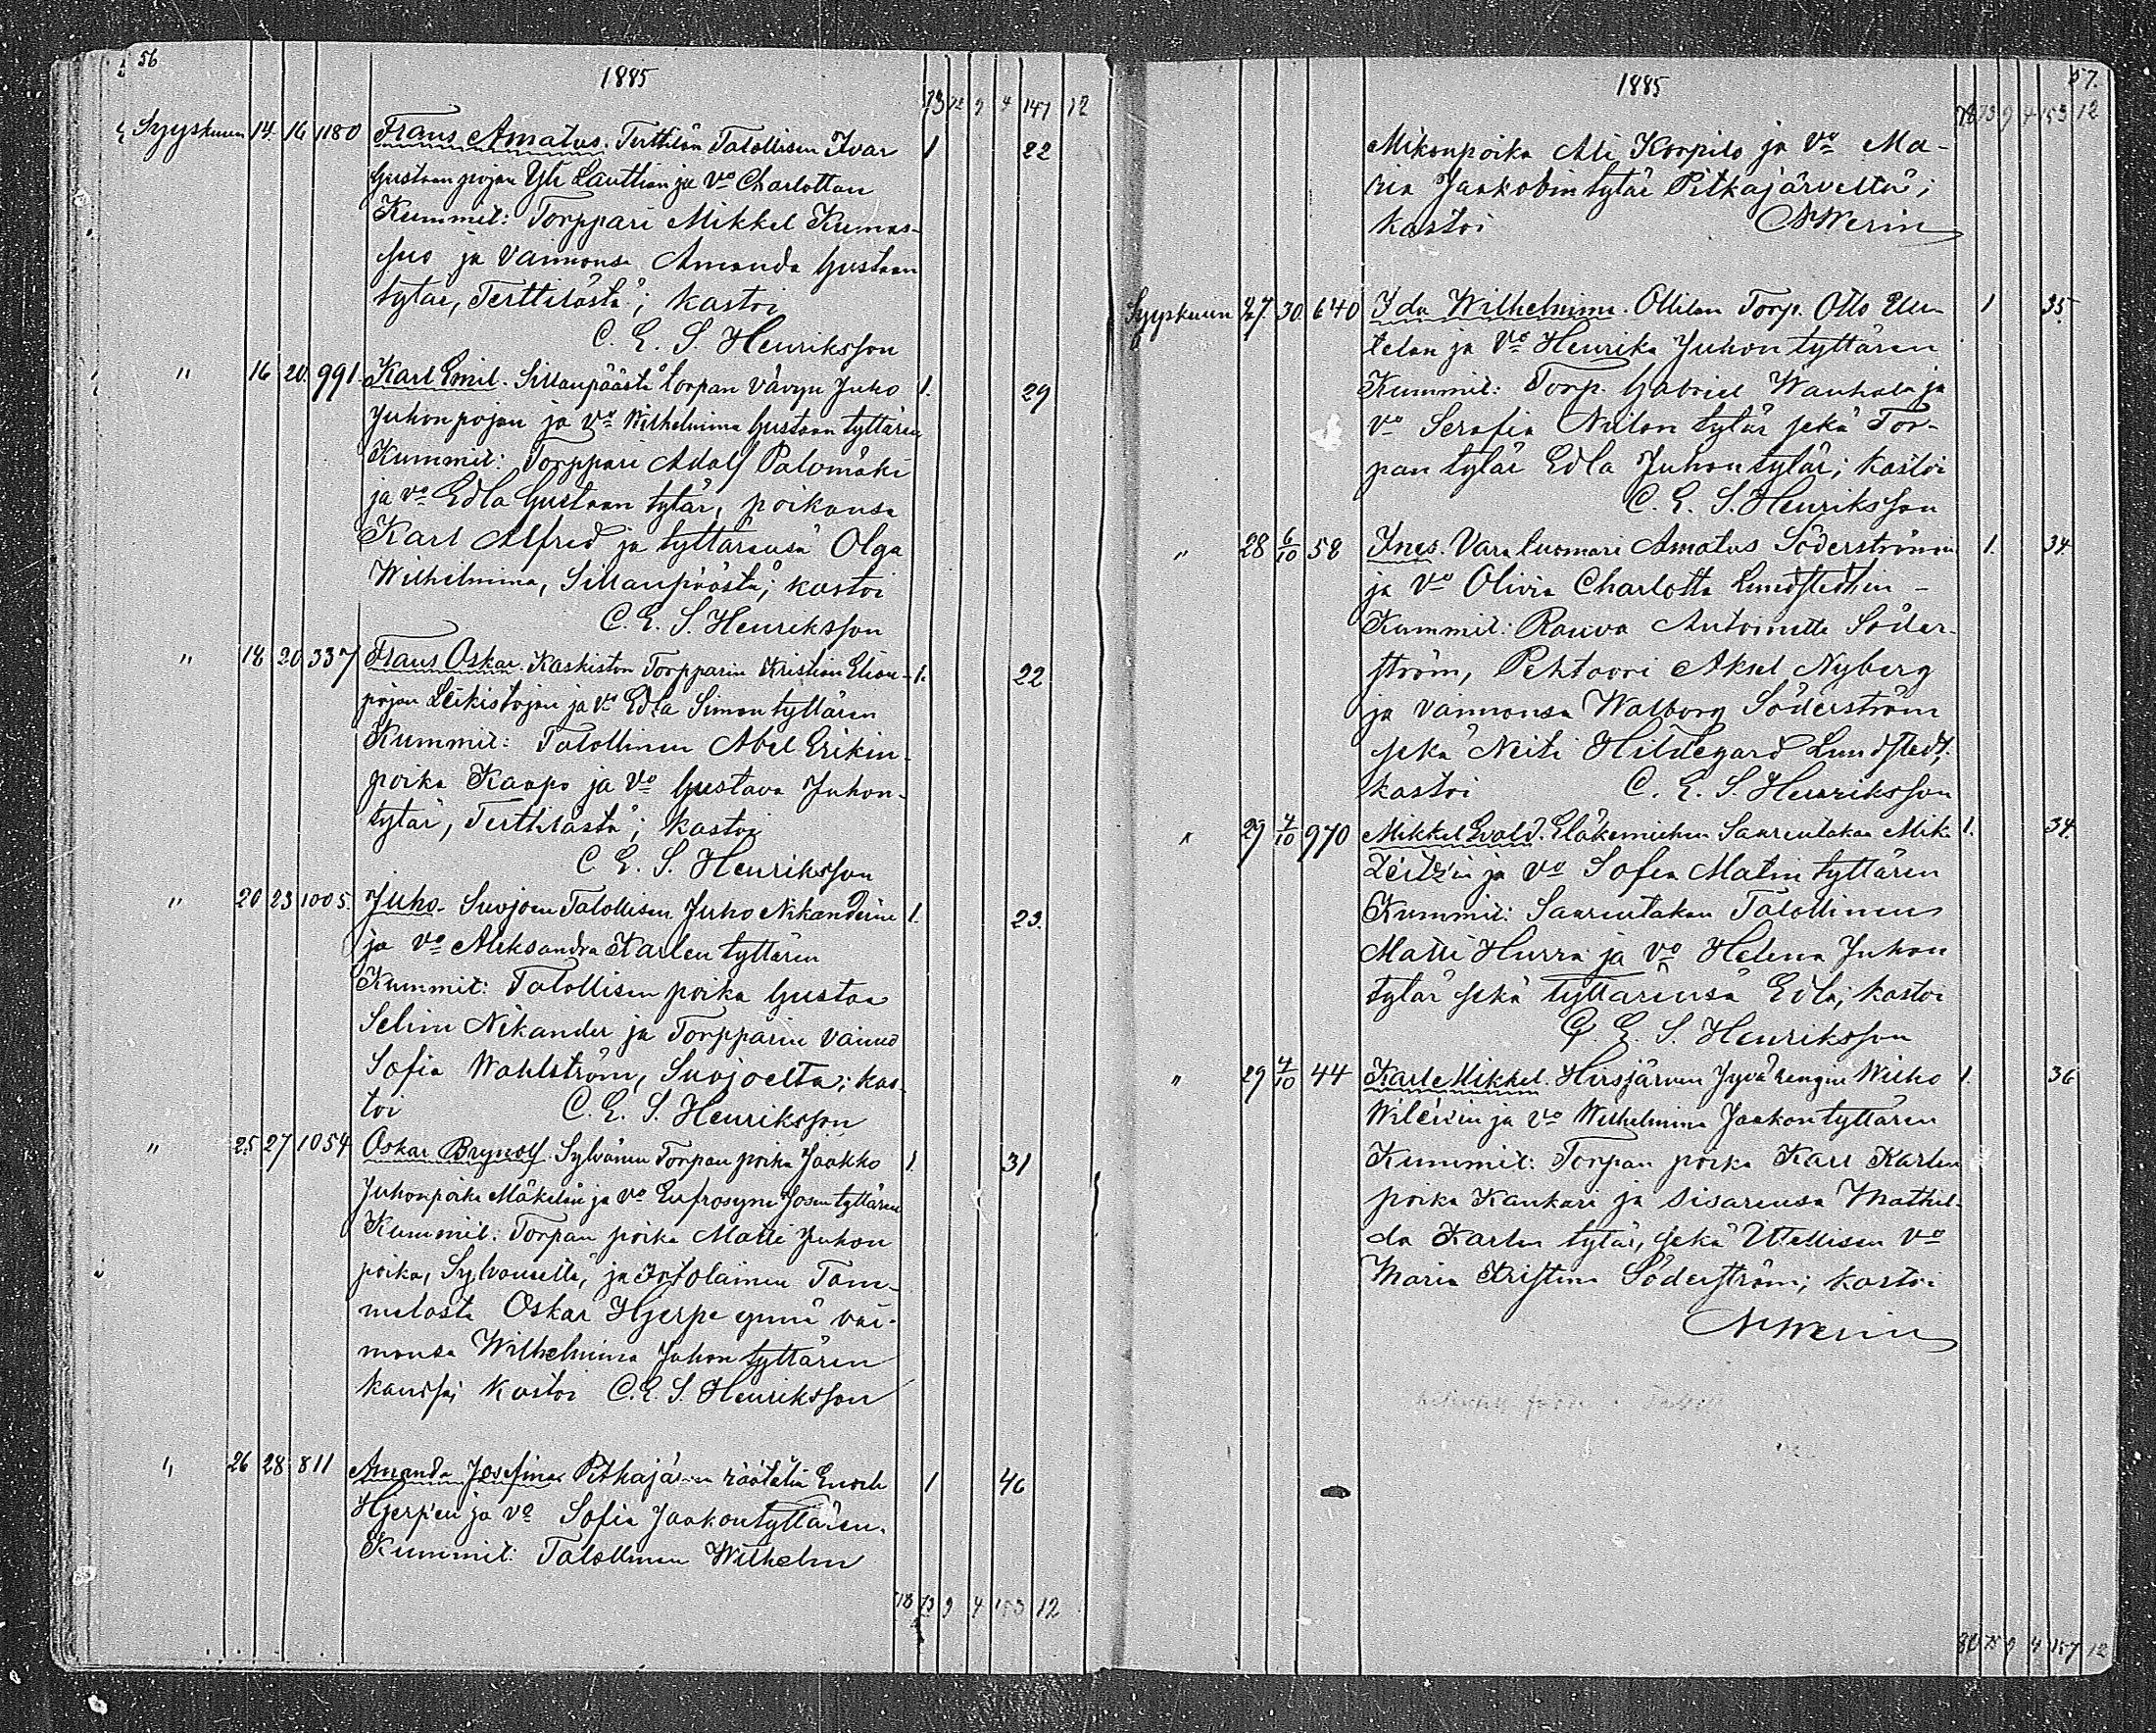 56
1885
73 72 9 4 147 12
Syyskuun 14. 16 1180 Frans Amatus. Terttilän Talollisen Ivar 1 22
Gustaanpojan Yli Lauttian ja Vo Charlottan
Kummit: Torppari Mikkel Kumas-
suo ja Vaimonsa Amanda Gustaan
tytär, Terttilästä; kastoi
C. E. S. Henriksson
" 16 20. 991. Karl Emil. Sillanpäästä torpan vävyn Juho 1. 29
Juhonpojan ja Vo Wilhelmina Gustaan tyttären
Kummit: Torppari Adolf Palomäki
ja vo Edla Gustaan tytär, poikansa
Karl Alfred ja tyttärensä Olga
Wilhelmina, Sillanpäästä; kastoi
C. E. S. Henriksson
" 18 20 337 Frans Oskar. Kaskiston Torpparin Kristian Elian- 1. 22
pojan Leikistojan ja Vo Edla Simon tyttären
Kummit: Talollinen Abel Erikin-
poika Kaapo ja Vo Gustava Juhon-
tytär, Terttilästä; kastoi
C. E. S. Henriksson
" 20 23 1005. Juho. Suojoen Talollisen Juho Nikanderin 1. 23.
ja Vo Aleksandra Karlen tyttären
Kummit: Talollisen poika Gustaa
Selim Nikander ja Torpparin Vaimo
Sofia Wahlström, Suojoelta; kas-
toi C. E. S. Henriksson
" 25 27 1054 Oskar Brynolf. Sylvänen Torpan poika Jaakko 1. 31
Juhonpoika Mäkelän ja Vo Eufrosyne Josen tyttären
Kummit: Torpan poika Matti Juhon
poika, Sylväneltä, ja Itolainen Tam-
melasta Oskar Hjerpe ynnä vai-
monsa Wilhelmina Juhon tyttären
kanssa; kastoi C. E. S. Henriksson
" 26 28 811 Amanda Josefina Pitkäjärven räätälin Enoch 1 46
Hjerpen ja Vo Sofia Jaakontyttären.
Kummit: Talollinen Wilhelm
78 73 9 4 153 12
57.
1885
78 73 9 4 153 12
Mikonpoika Ali Korpilo ja Vo Ma-
ria Jaakobin tytär Pitkäjärveltä;
kastoi NWerin
Syyskuun 27. 30. 640 Ida Wilhelmina. Ollilan Torp. Otto Elen 1 35.
telon ja Vo Henrika Juhon tyttären
Kummit: Torp. Gabriel Wanhala ja
Vo Serafia Niilon tytär sekä Tor-
pan tytär Edla Juhon tytär; kastoi
C. E. S. Henriksson
" 28 6/10 58 Ines. Varatuomari Amatus Söderströmin 1. 34
ja Vo Olivia Charlotta Lundstedtin -
Kummit: Rouva Antoinette Söder-
ström, Pehtoori Aksel Nyberg
ja vaimonsa Walborg Söderström
sekä Neiti Hildegard Lundstedt;
kastoi C. E. S. Henriksson
" 29 4/10 970 Mikkel Evald. Eläkemiehen Saarentakaa Mik 1. 34.
Leitzin ja Vo Sofia Matin tyttären
Kummit: Saarentakan Talollinen
Matti Hurra ja Vo Helena Juhon
tytär sekä tyttärensä Edla; kastoi
C. E. S. Henriksson
" 29 4/10 44 Karl Mikkel. Hirsjärven Jyvärengin Wilho 1. 36
Wilenin ja Vo Wilhelmina Jaakon tyttären
Kummit: Torpan poika Karl Karlen
poika Kankari ja sisarensa Mathil-
da Karlen tytär, sekä Itellisen Vo
Maria Kristina Söderström; kastoi
NWerin
75 9 4 157 12